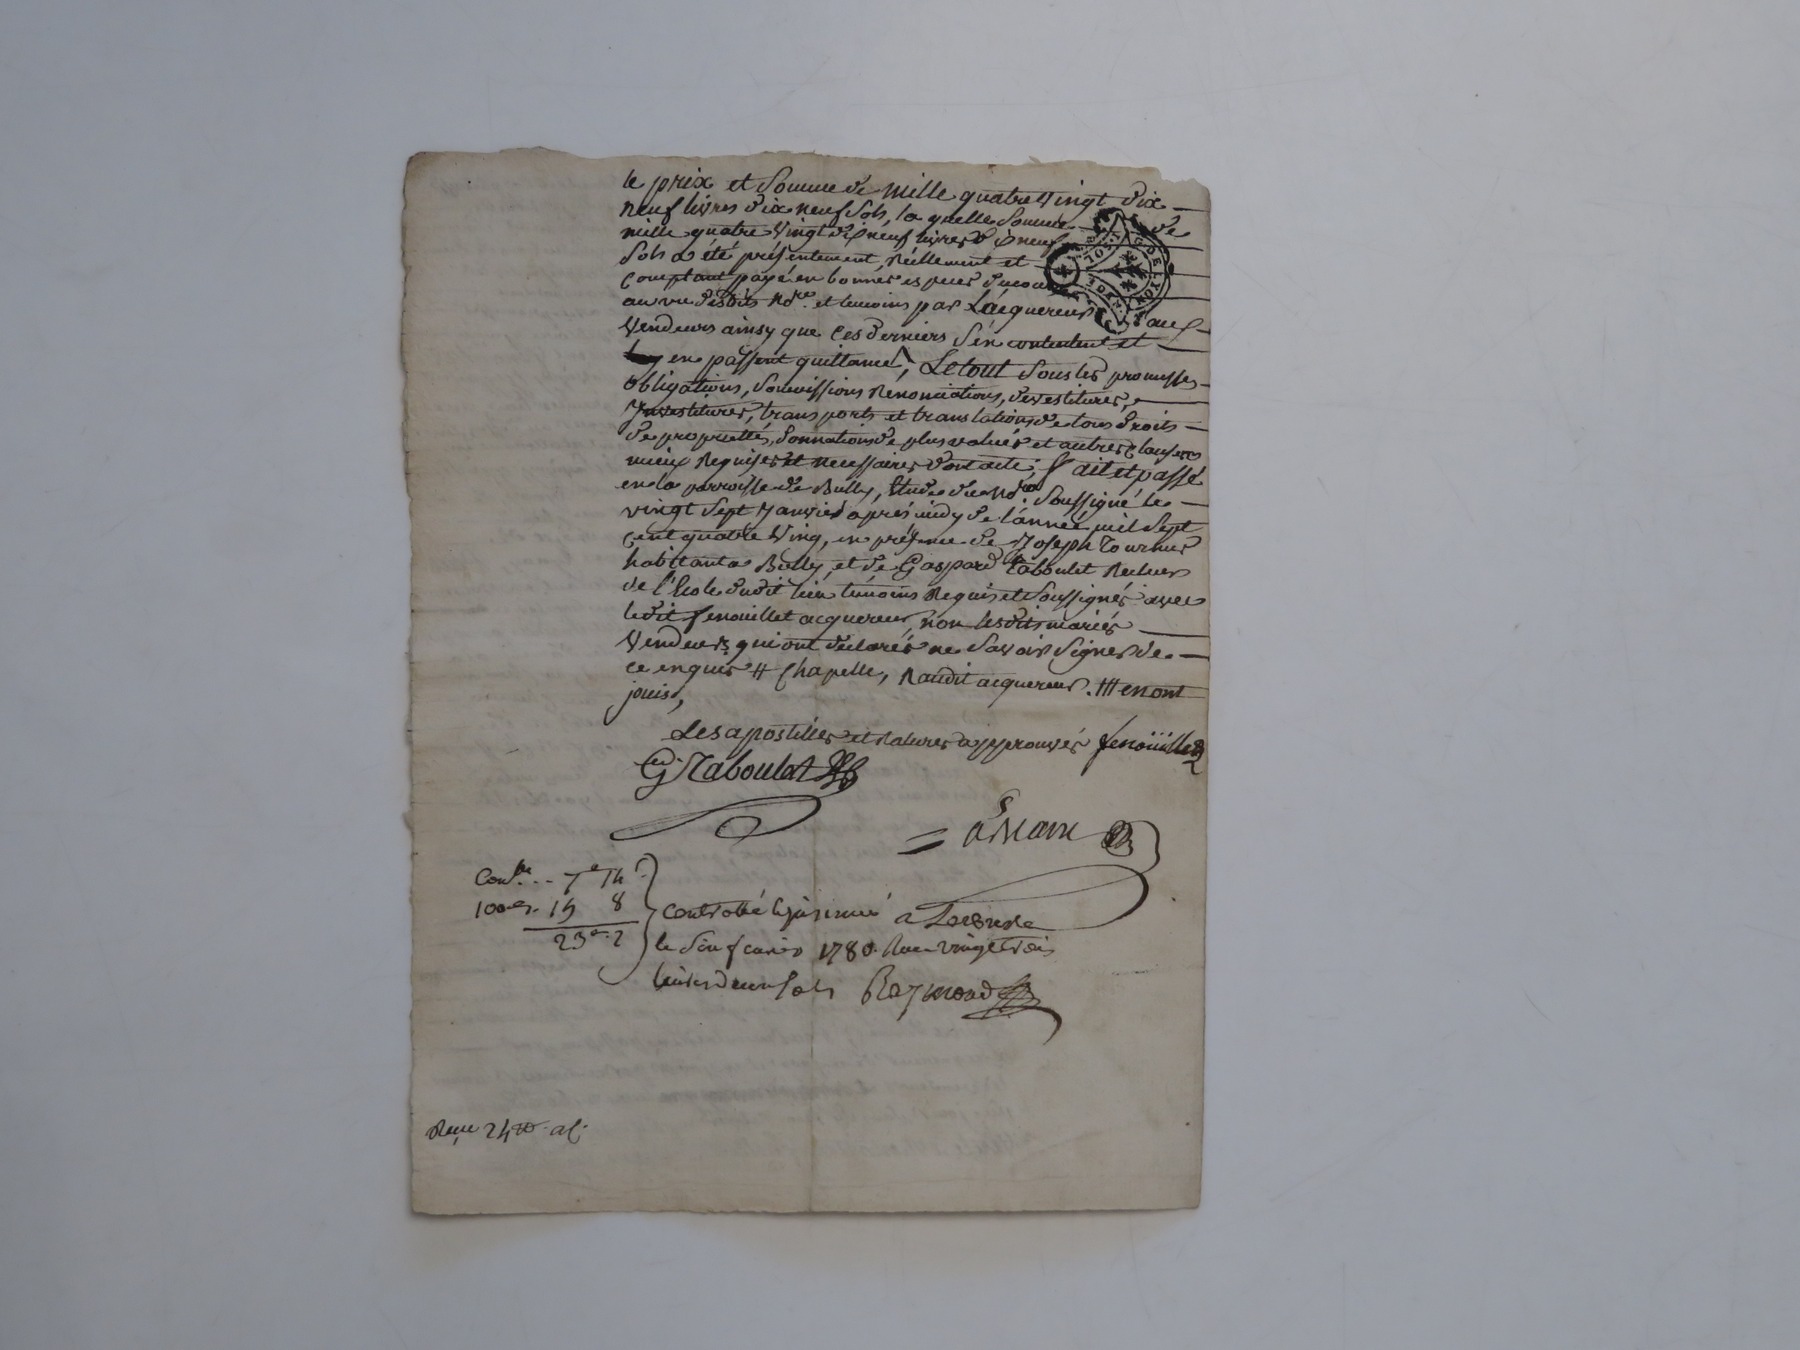 le prix et Somme de mille quatre Vingt dix
neuf livres dix neuf Sols, la quelle Somme de
mille quatre Vingt dix neuf livres dix neuf
Sols a été présentement, réellement et
Comptant payé en bonnes especes
au vu desdits Nore. et temoins par L'acquereur aux
Vendeurs ainsy que Ces derniers S'en contentent et
en passent quittance, Le tout Sous les promesses
obligations, Soumissions Renonciations, devestitures,
Jnvestitures, transports et translations de tous droits
de propriettés, donnations de plus values et autres Clauses
mieux Requises et necessaires dont acte; Fait et passé
en la parroisse de Bully, Etude du Nore. Soussigné le
vingt Sept Janvier après midy de l'année mil Sept
Cent quatre Ving, en présence de Joseph Tournus
habittant a Bully, et de Gaspard Raboulet Recteur
de l'Ecole dudit lieu temoins Requis et Soussignés avec
ledit fenouillet acquereur, non lesdits mariés
Vendeurs qui ont declarés ne Savoir Signer de
ce enquis # Chapelle, Raudit acquereur. ### en ont
jouis,
Les apostilles et Ratures approuvés fenoüillet
G Raboulet

Conle. .. 7 14
100e. 15 8
23 . 2
Controllé Insinué a
le Six fevrier 1780. Recu vingt trois
livres deux Sols Raymond
Reçu 24